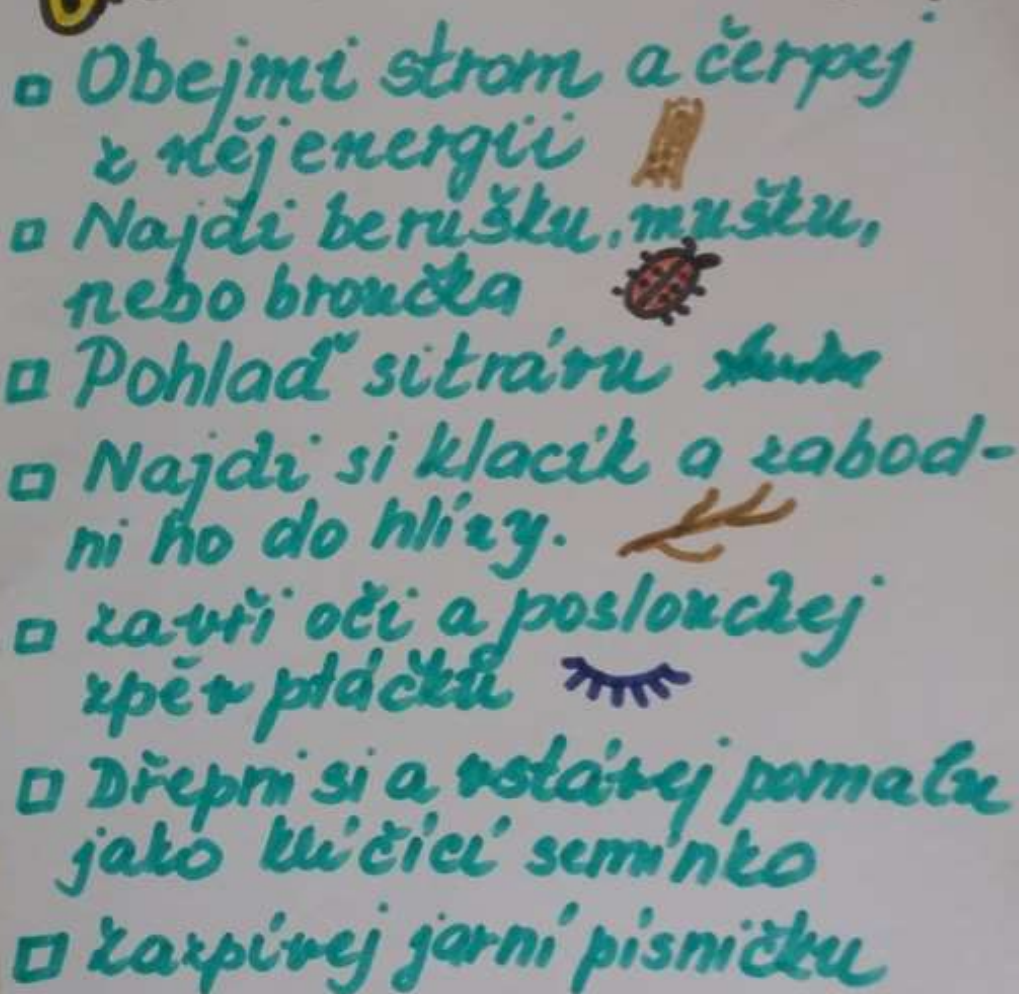 Obejmi strom a čerpej
z něj energii
Najdi berušku, mušku,
nebo broučka
Pohlaď si trávu
Najdi si klacík a zabod-
ni ho do hlízy.
zavři oči a poslouchej
zpěv ptáčků
Dřepni si a vstávej pomalu
jako klíčící semínko
zazpívej jarní písničku